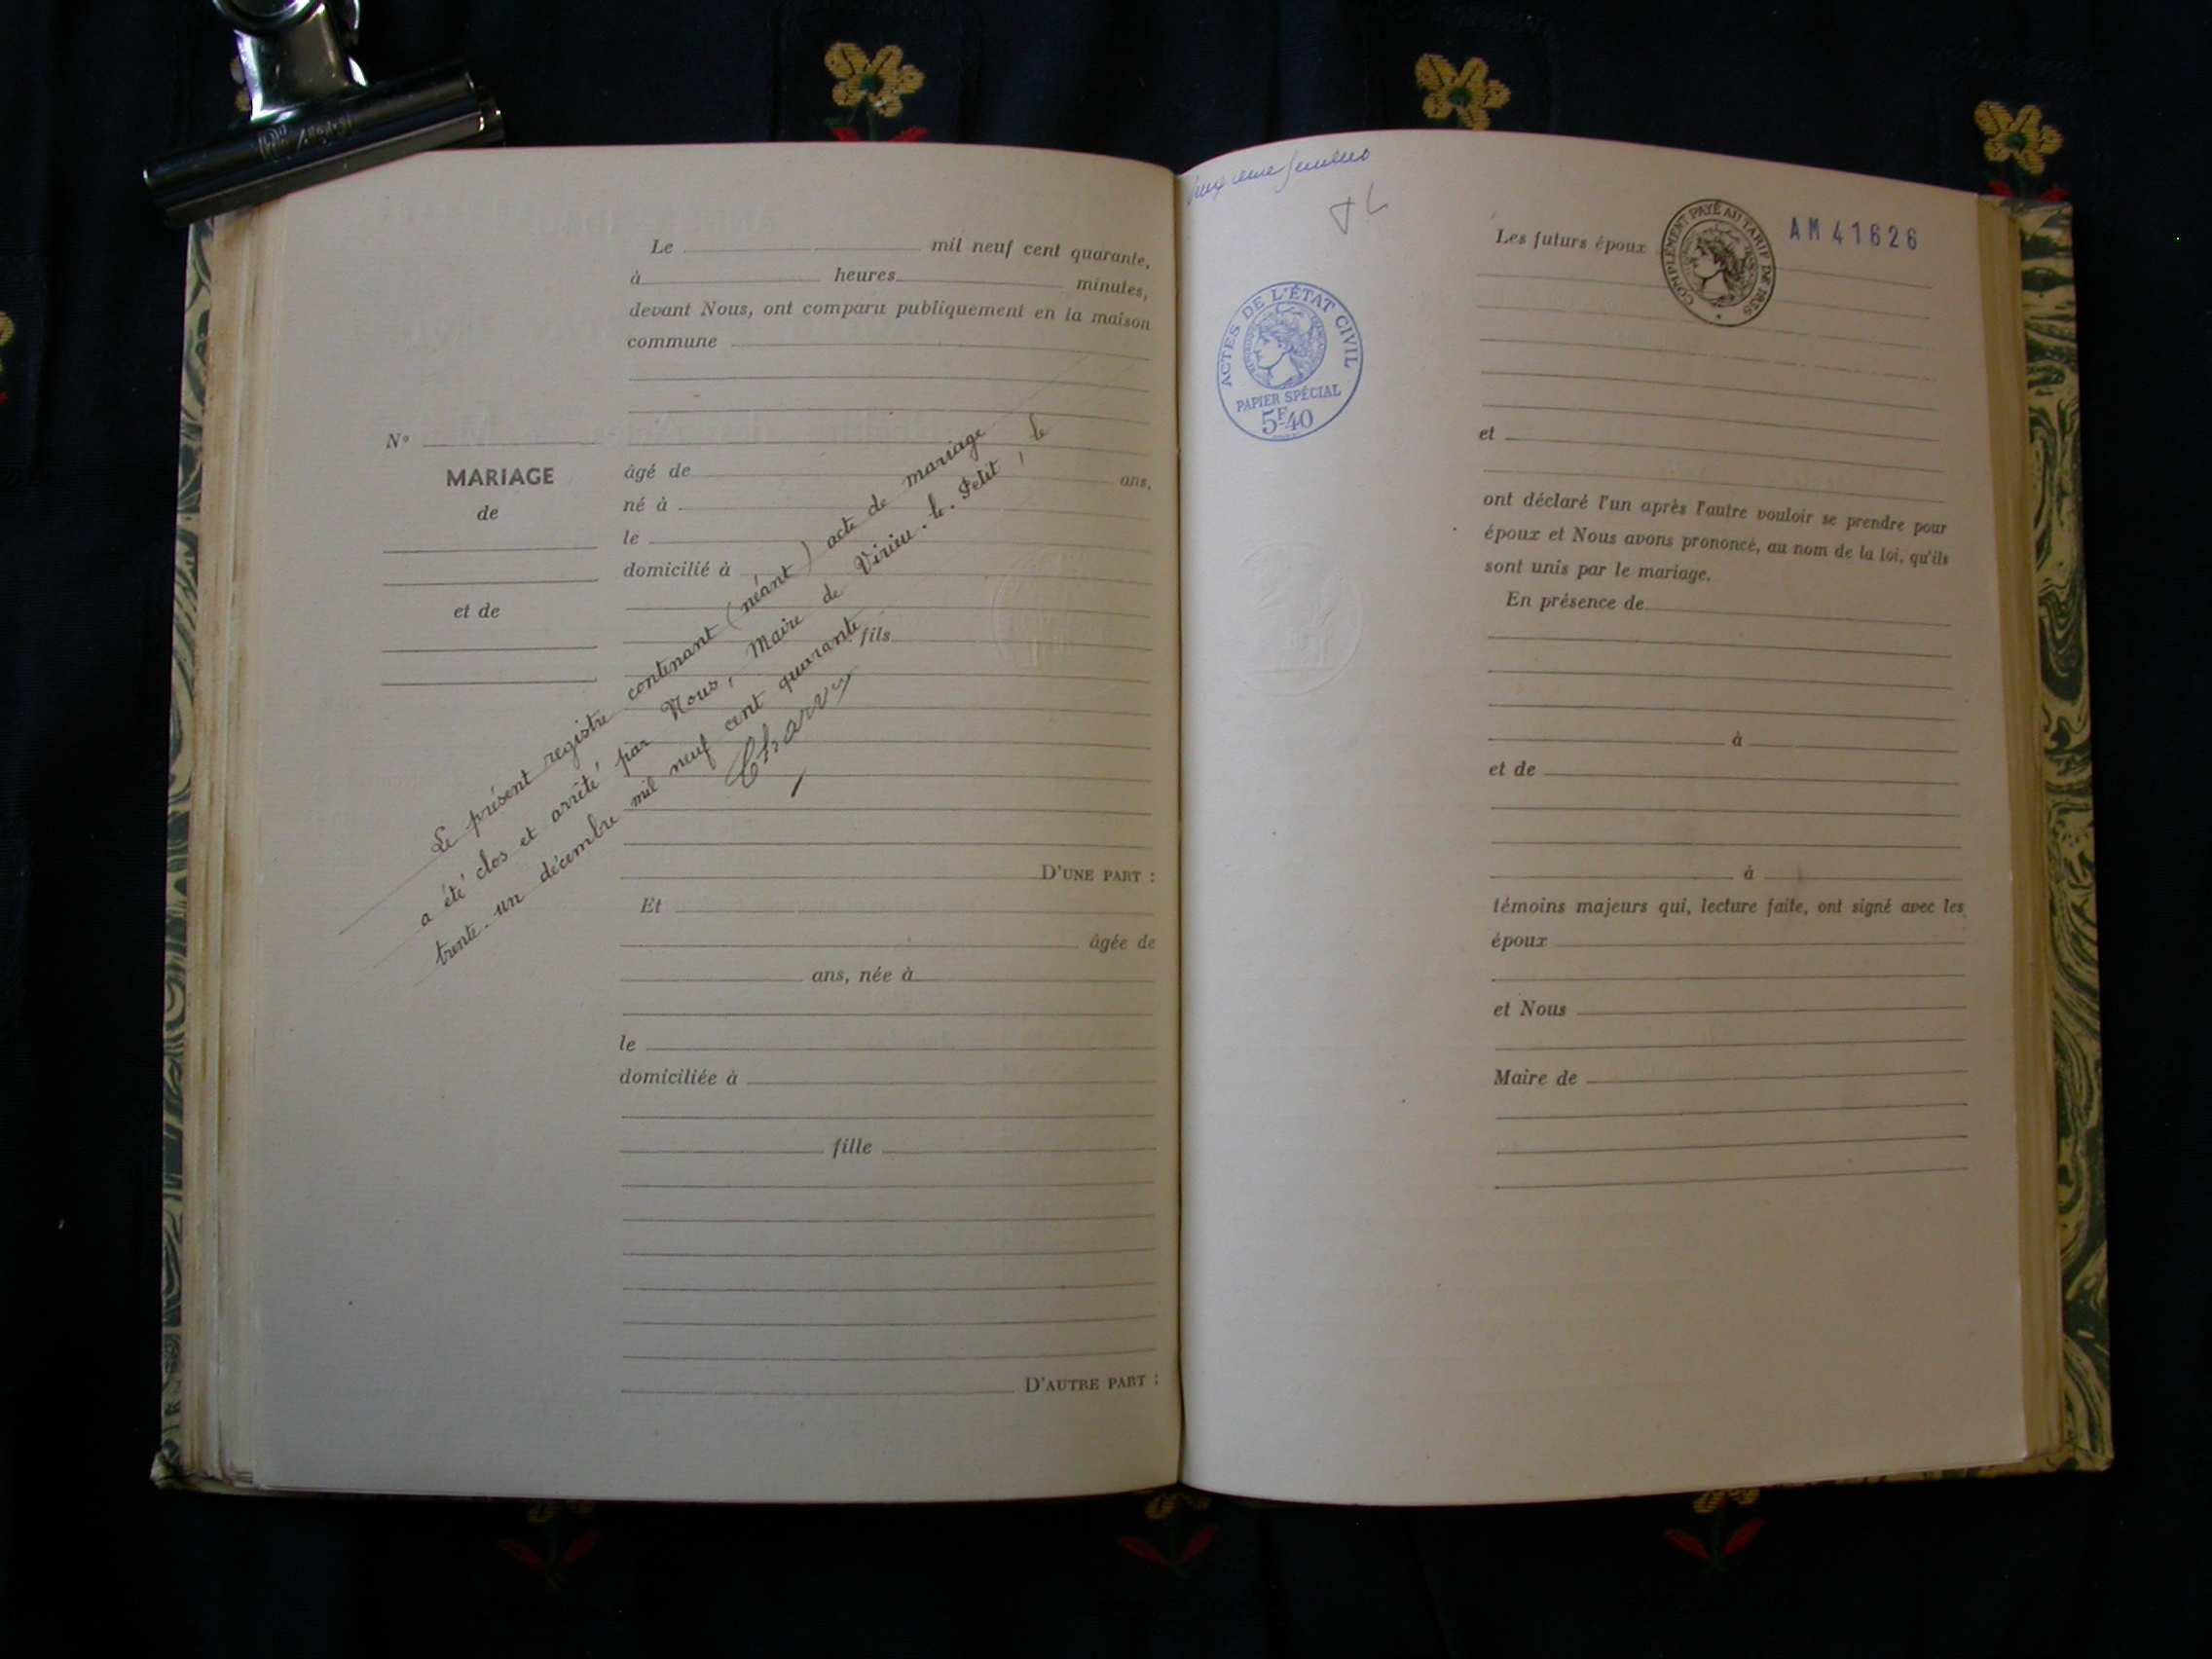 Le mil neuf cent quarante,
à heures minutes,
devant Nous, ont comparu publiquement en la maison
commune
N°
MARIAGE
de
et de
âgé de ans,
né à
le
domicilié à
fils
D'UNE PART :
Et
âgée de
ans, née à
le
domiciliée à
fille
D'AUTRE PART :
Le présent registre contenant (néant) acte de mariage
a été clos et arrêté par Nous, Maire de Virieu-le-Petit, le
trente-un décembre mil neuf cent quarante
Charvy
ACTES DE L'ÉTAT CIVIL
PAPIER SPÉCIAL
5F40
Les futurs époux
COMPLÉMENT PAYÉ AU TARIF DE 1935
AM 41626
et
ont déclaré l'un après l'autre vouloir se prendre pour
époux et Nous avons prononcé, au nom de la loi, qu'ils
sont unis par le mariage.
En présence de
à
et de
à
témoins majeurs qui, lecture faite, ont signé avec les
époux
et Nous
Maire de